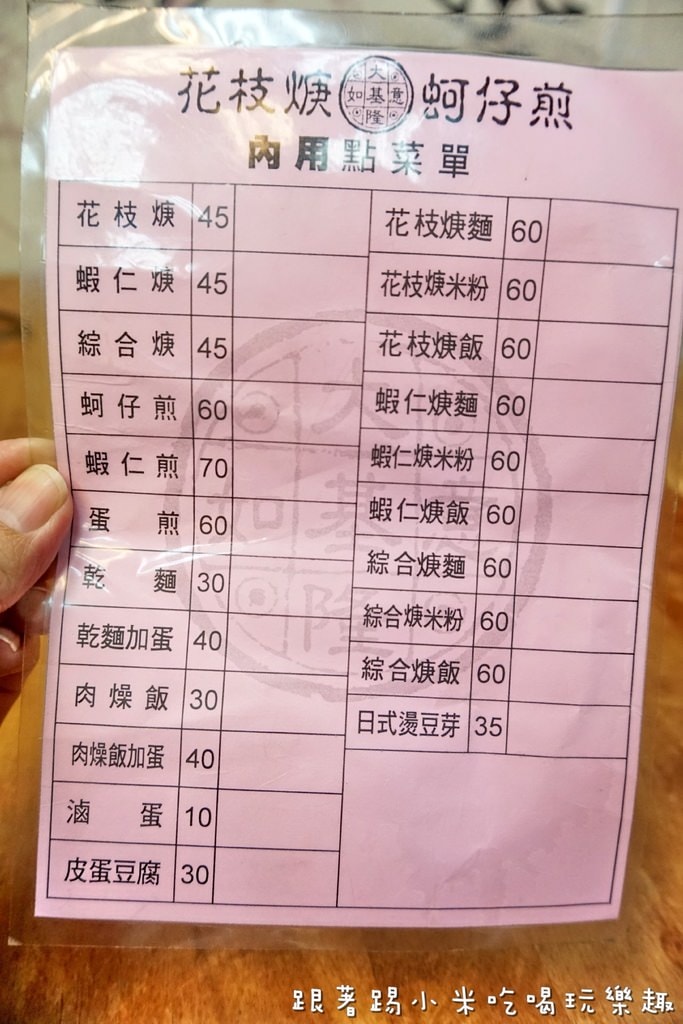 花枝焿 大如基意隆 蚵仔煎
內用點菜單
花枝焿 45
蝦仁焿 45
綜合焿 45
蚵仔煎 60
蝦仁煎 70
蛋煎 60
乾麵 30
乾麵加蛋 40
肉燥飯 30
肉燥飯加蛋 40
滷蛋 10
皮蛋豆腐 30
花枝焿麵 60
花枝焿米粉 60
花枝焿飯 60
蝦仁焿麵 60
蝦仁焿米粉 60
蝦仁焿飯 60
綜合焿麵 60
綜合焿米粉 60
綜合焿飯 60
日式燙豆芽 35
大
如基意
隆
跟著踢小米吃喝玩樂趣